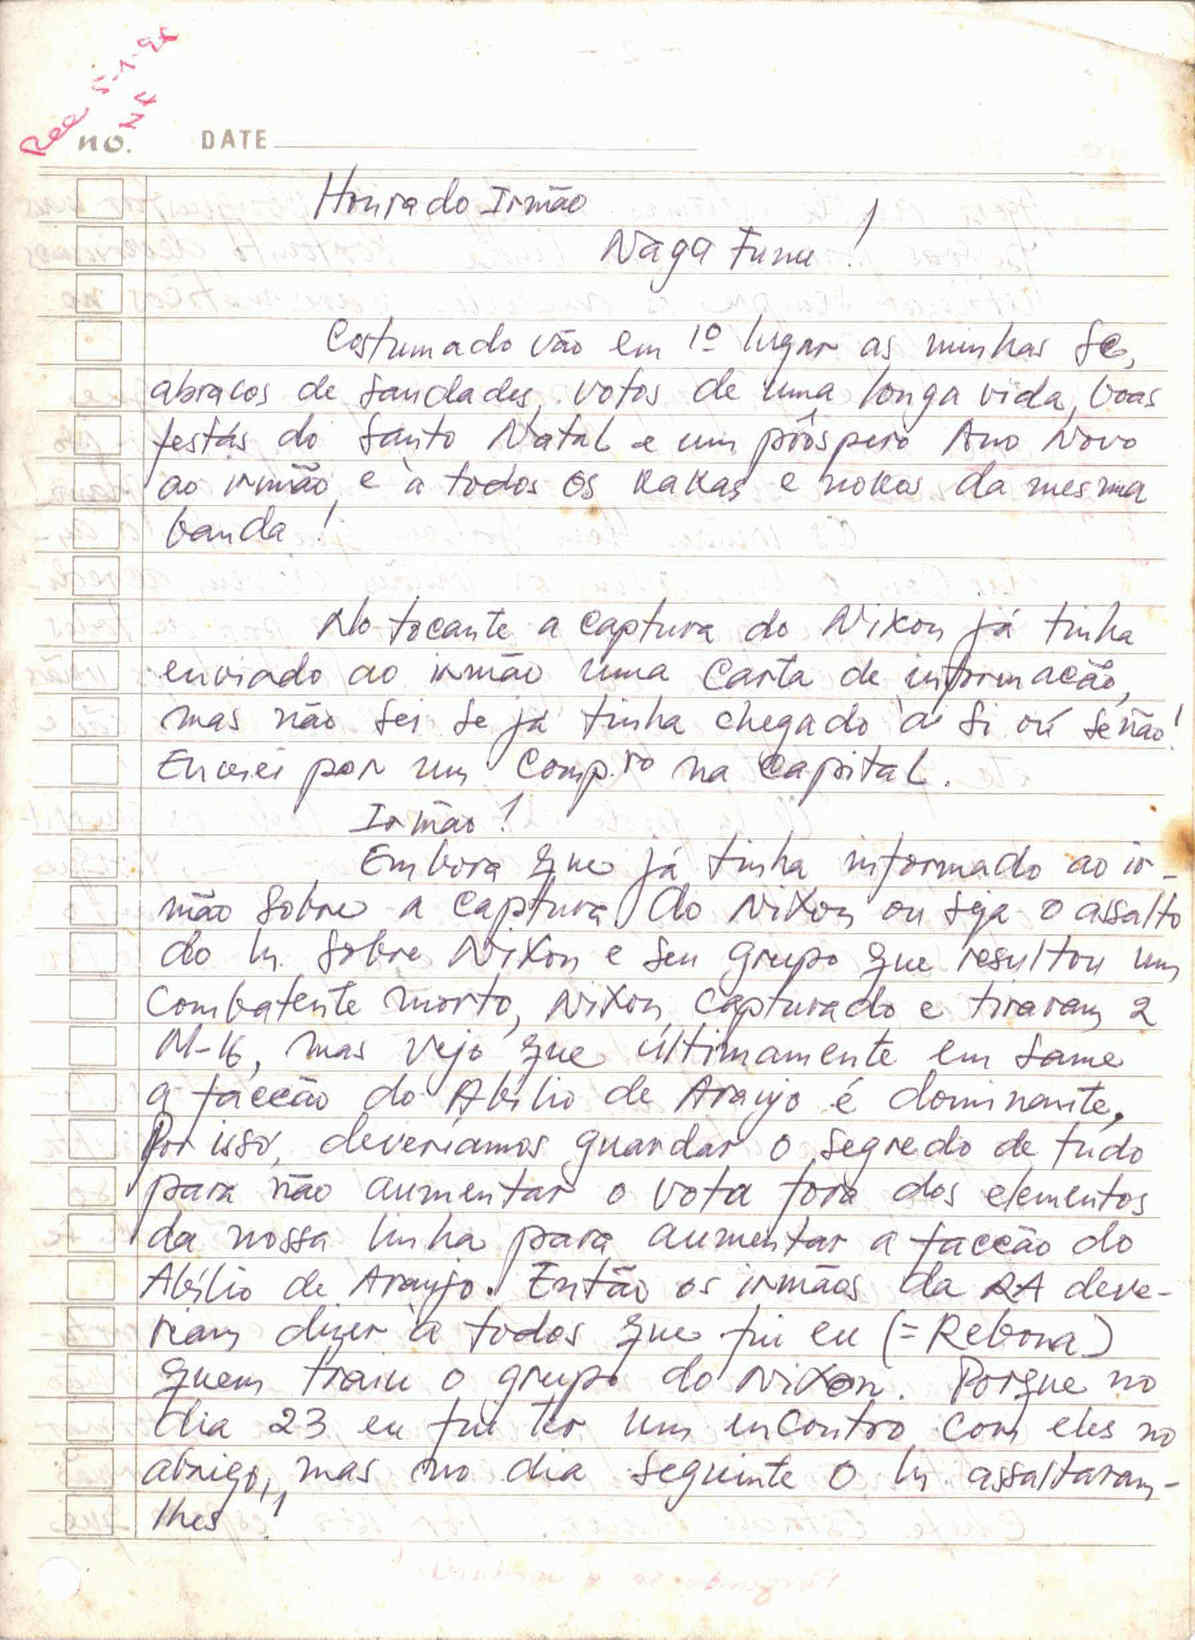 Rec 5-1-96
N4
no. DATE
Honrado Irmão
Naga Funu !
Costumado vão em 1º lugar as minhas Sc,
abracos de Saudades, votos de uma longa vida, boas
festas do Santo Natal e um próspero Ano Novo
ao irmão, e à todos os kakas e nokas da mesma
banda !
No tocante a captura do Nixon já tinha
enviado ao irmão uma Carta de informacão,
mas não sei se já tinha chegado à si oú senão!
Enviei por um Comp.ro na Capital.
Irmão !
Embora que já tinha informado ao ir-
mão sobre a captura do Nixon ou seja o assalto
do In. Sobre Nixon e seu grupo que resultou um
Combatente morto, Nixon Capturado e tiraram 2
M-16, mas vejo que últimamente em Same
a faccão do Abílio de Araujo é dominante.
Por isso, deveríamos guardar o segredo de tudo
para não aumentar o vota fora dos elementos
da nossa linha para aumentar a faccão do
Abílio de Araujo. Então os irmãos da RA deve-
riam dizer à todos que fui eu (=Rebona)
quem traiu o grupo do Nixon. Porque no
dia 23 eu fui ter um encontro com eles no
abrigo, mas no dia seguinte o In. assaltaram-
lhes !